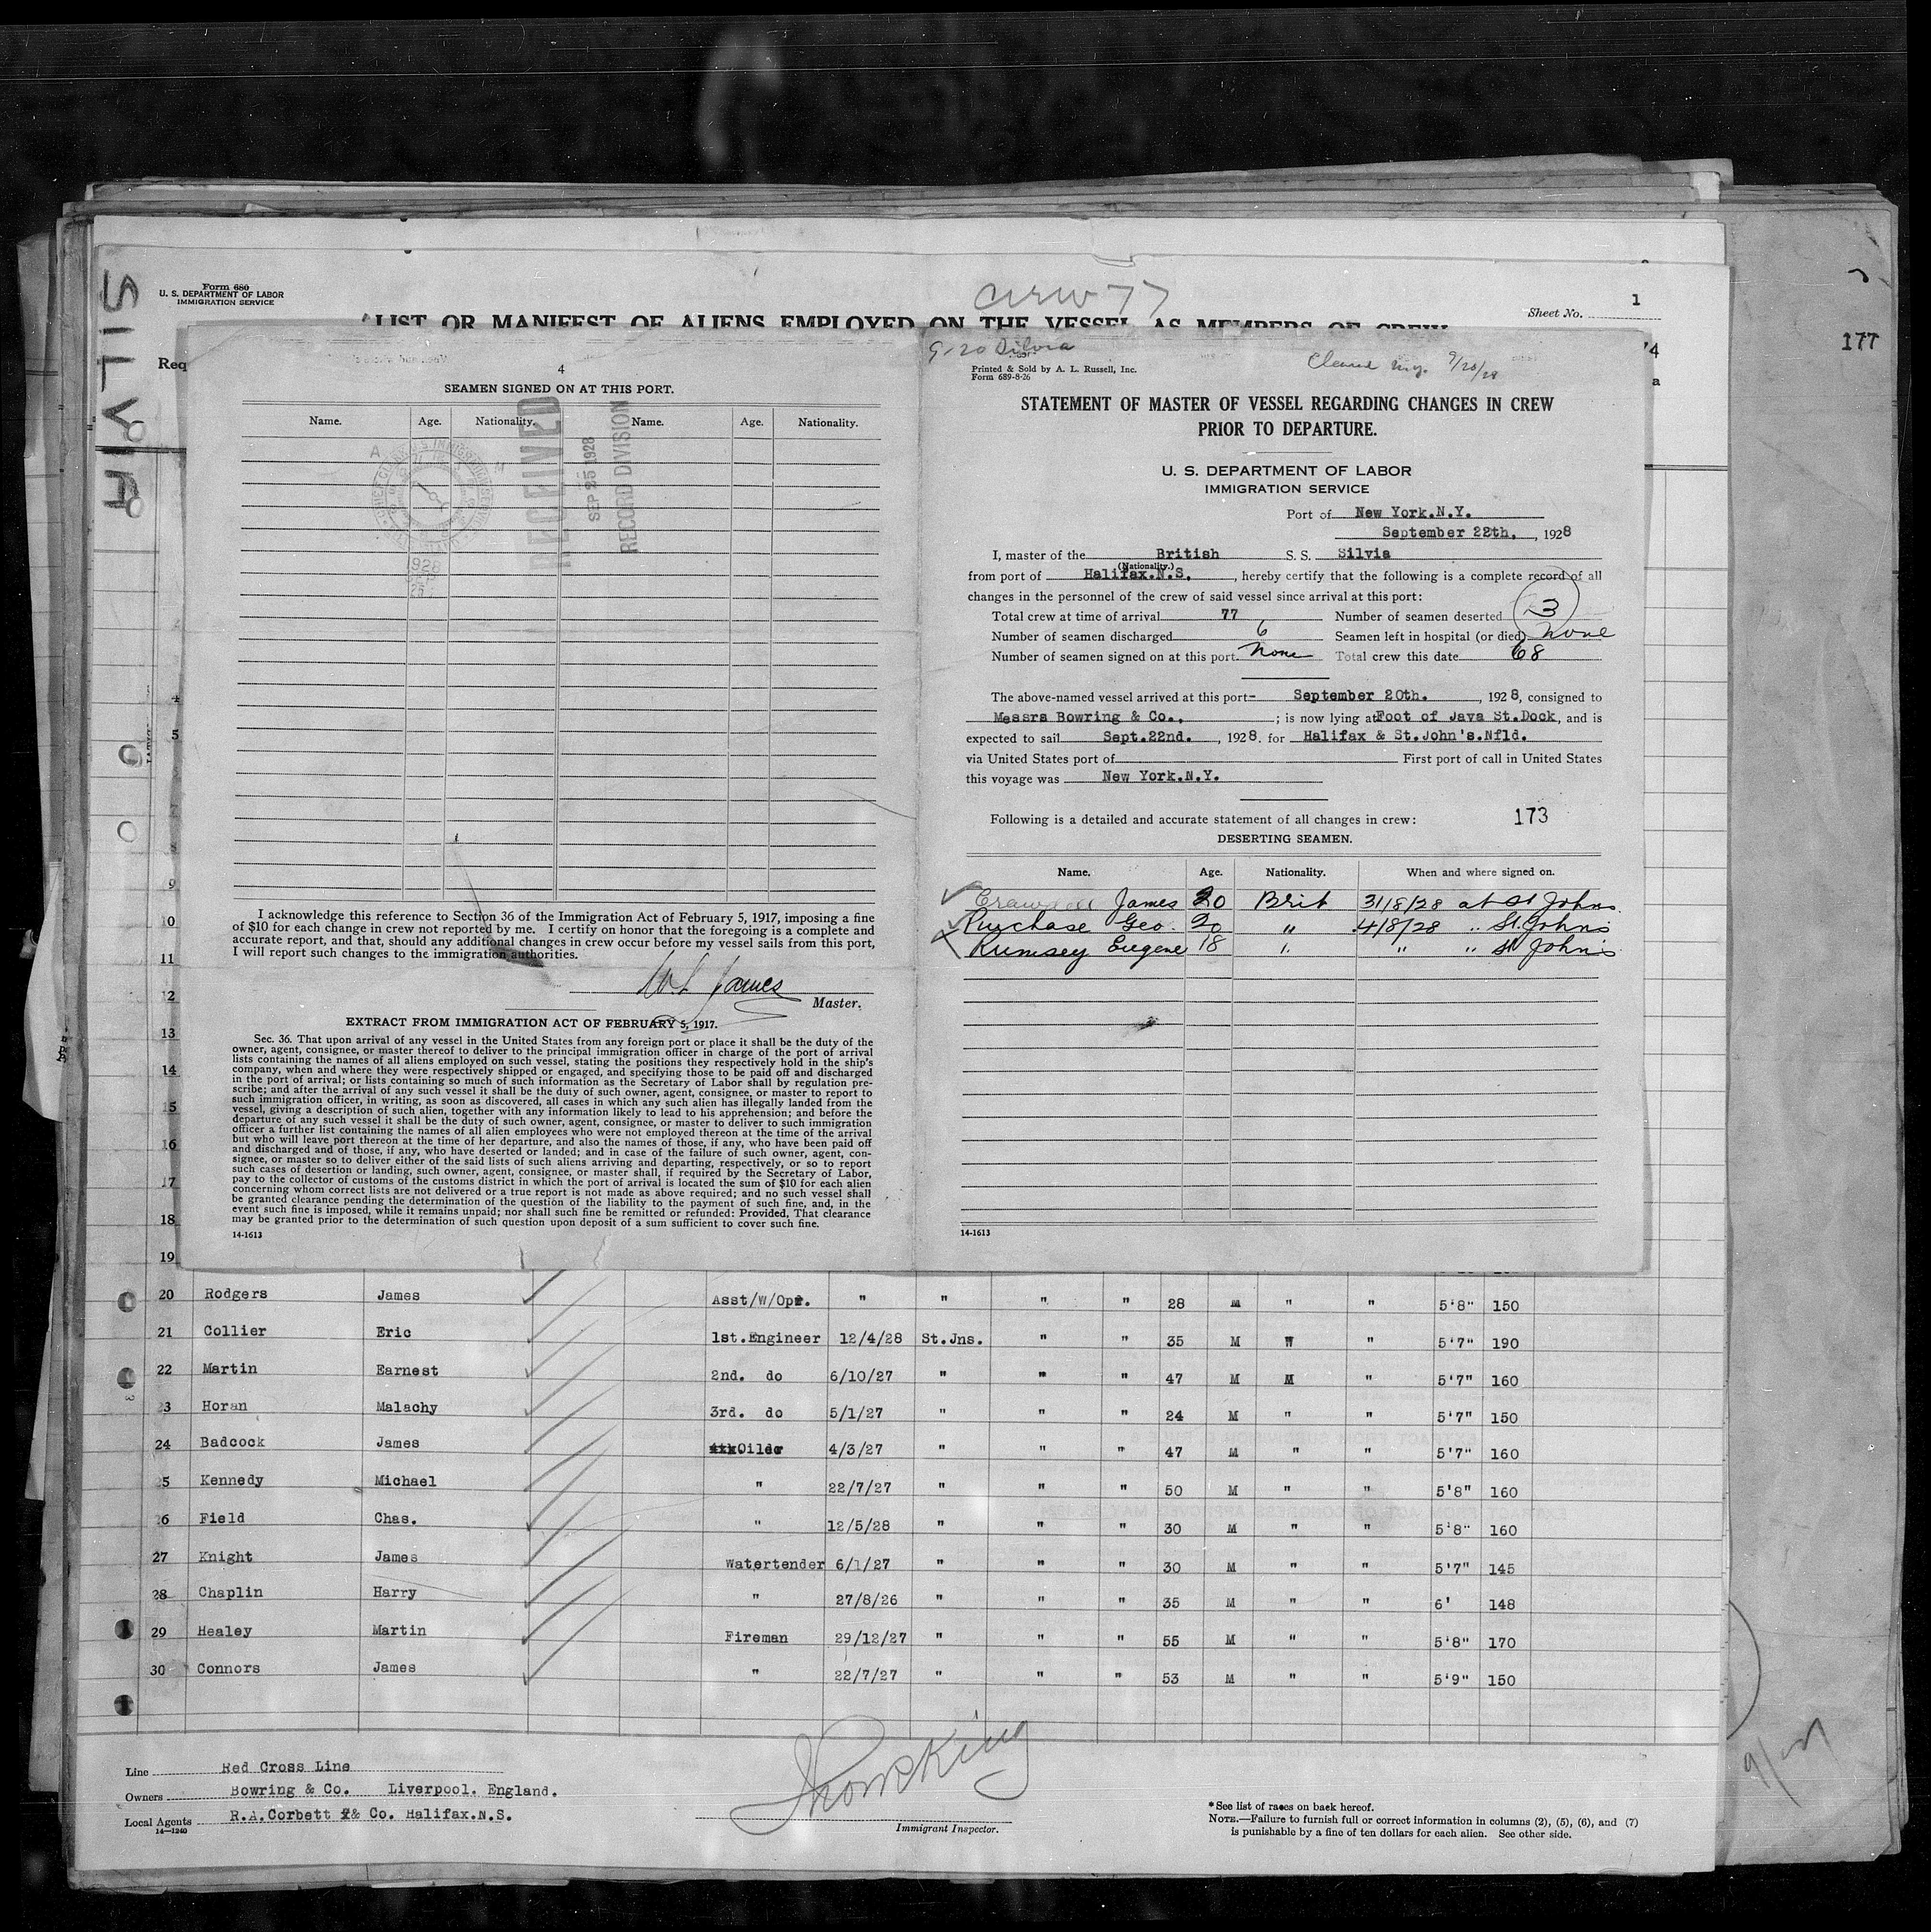 SILVIA
Form 680
U. S. DEPARTMENT OF LABOR
IMMIGRATION SERVICE
crew 77
Sheet No. 1
LIST OR MANIFEST OF ALIENS EMPLOYED ON THE VESSEL AS MEMBERS OF CREW
Req
177
4
SEAMEN SIGNED ON AT THIS PORT.
Name. Age. Nationality. Name. Age. Nationality.
RECEIVED
SEP 25 1928
RECORD DIVISION
1928
I acknowledge this reference to Section 36 of the Immigration Act of February 5, 1917, imposing a fine
of $10 for each change in crew not reported by me. I certify on honor that the foregoing is a complete and
accurate report, and that, should any additional changes in crew occur before my vessel sails from this port,
I will report such changes to the immigration authorities.
James
Master.
EXTRACT FROM IMMIGRATION ACT OF FEBRUARY 5, 1917.
Sec. 36. That upon arrival of any vessel in the United States from any foreign port or place it shall be the duty of the
owner, agent, consignee, or master thereof to deliver to the principal immigration officer in charge of the port of arrival
lists containing the names of all aliens employed on such vessel, stating the positions they respectively hold in the ship's
company, when and where they were respectively shipped or engaged, and specifying those to be paid off and discharged
in the port of arrival; or lists containing so much of such information as the Secretary of Labor shall by regulation pre-
scribe; and after the arrival of any such vessel it shall be the duty of such owner, agent, consignee, or master to report to
such immigration officer, in writing, as soon as discovered, all cases in which any such alien has illegally landed from the
vessel, giving a description of such alien, together with any information likely to lead to his apprehension; and before the
departure of any such vessel it shall be the duty of such owner, agent, consignee, or master to deliver to such immigration
officer a further list containing the names of all alien employees who were not employed thereon at the time of the arrival
but who will leave port thereon at the time of her departure, and also the names of those, if any, who have been paid off
and discharged and of those, if any, who have deserted or landed; and in case of the failure of such owner, agent, con-
signee, or master so to deliver either of the said lists of such aliens arriving and departing, respectively, or so to report
such cases of desertion or landing, such owner, agent, consignee, or master shall, if required by the Secretary of Labor,
pay to the collector of customs of the customs district in which the port of arrival is located the sum of $10 for each alien
concerning whom correct lists are not delivered or a true report is not made as above required; and no such vessel shall
be granted clearance pending the determination of the question of the liability to the payment of such fine, and, in the
event such fine is imposed, while it remains unpaid; nor shall such fine be remitted or refunded: Provided, That clearance
may be granted prior to the determination of such question upon deposit of a sum sufficient to cover such fine.
14-1613
9-20 Silvia
Printed & Sold by A. L. Russell, Inc.
Form 689-8-26
Cleared 9/20/28
STATEMENT OF MASTER OF VESSEL REGARDING CHANGES IN CREW
PRIOR TO DEPARTURE.
U. S. DEPARTMENT OF LABOR
IMMIGRATION SERVICE
Port of New York.N.Y.
September 22th. , 1928
I, master of the British S. S. Silvia
(Nationality.)
from port of Halifax.N.S. , hereby certify that the following is a complete record of all
changes in the personnel of the crew of said vessel since arrival at this port:
Total crew at time of arrival 77 Number of seamen deserted 3
Number of seamen discharged 6 Seamen left in hospital (or died) None
Number of seamen signed on at this port None Total crew this date 68
The above-named vessel arrived at this port- September 20th. , 1928, consigned to
Messrs Bowring & Co., ; is now lying at Foot of Java St.Dock, and is
expected to sail Sept.22nd. , 1928. for Halifax & St.John's.Nfld.
via United States port of First port of call in United States
this voyage was New York.N.Y.
Following is a detailed and accurate statement of all changes in crew: 173
DESERTING SEAMEN.
Name. Age. Nationality. When and where signed on.
James 20 Brit 31/8/28 at St Johns.
Purchase Geo. 20 " 4/8/28 " St. John's
Rumsey Eugene 18 " " " St John's
14-1613
4
5
7
8
9
10
11
12
13
14
15
16
17
18
19
20 Rodgers James Asst/W/Opr. " " " " 28 M " " 5'8" 150
21 Collier Eric 1st.Engineer 12/4/28 St.Jns. " " 35 M W " 5'7" 190
22 Martin Earnest 2nd. do 6/10/27 " " " 47 M M " 5'7" 160
23 Horan Malachy 3rd. do 5/1/27 " " " 24 M " " 5'7" 150
24 Badcock James Oiler 4/3/27 " " " 47 M " " 5'7" 160
25 Kennedy Michael " 22/7/27 " " " 50 M " " 5'8" 160
26 Field Chas. " 12/5/28 " " " 30 M " " 5'8" 160
27 Knight James Watertender 6/1/27 " " " 30 M " " 5'7" 145
28 Chaplin Harry " 27/8/26 " " " 35 M " " 6' 148
29 Healey Martin Fireman 29/12/27 " " " 55 M " " 5'8" 170
30 Connors James " 22/7/27 " " " 53 M " " 5'9" 150
Line Red Cross Line
Owners Bowring & Co. Liverpool. England.
Local Agents R.A.Corbett & Co. Halifax.N.S.
14-1240
Immigrant Inspector.
*See list of races on back hereof.
NOTE.—Failure to furnish full or correct information in columns (2), (5), (6), and (7)
is punishable by a fine of ten dollars for each alien. See other side.